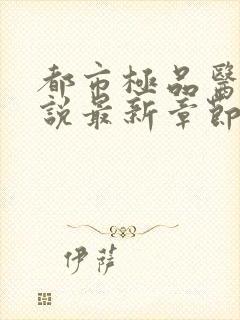 都市極品醫
說最新章節
伊薩